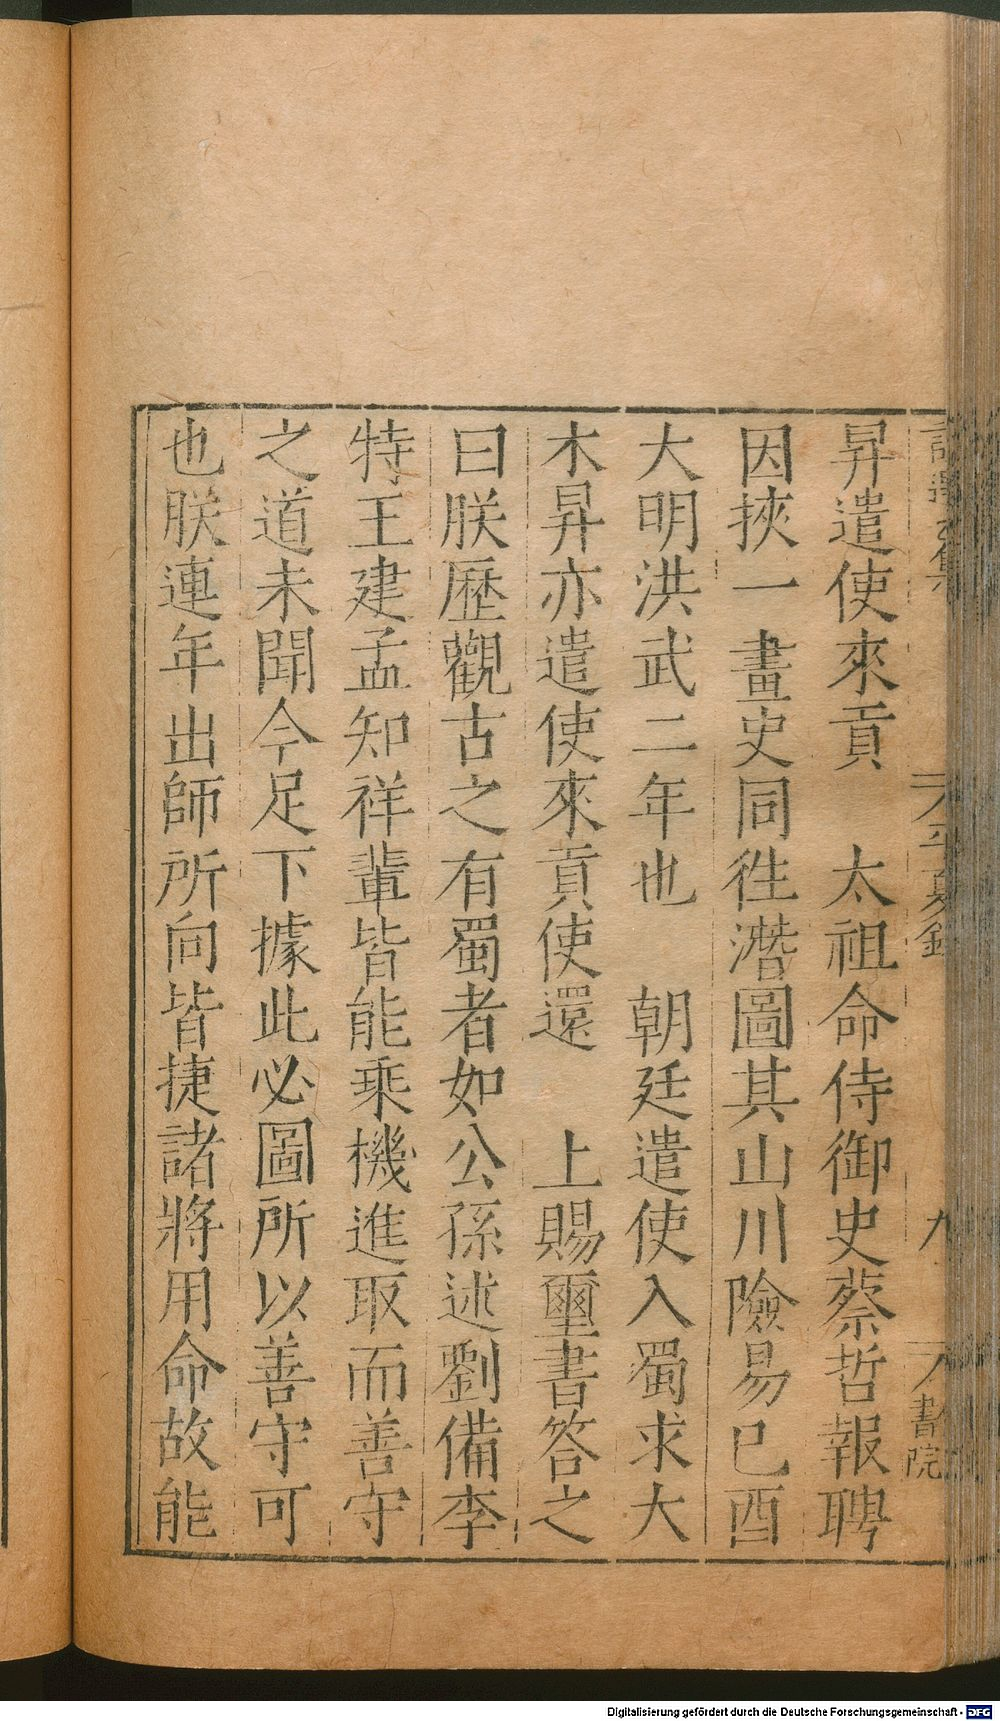 平夏錄
九
書院
昇遣使來貢　太祖命侍御史蔡哲報聘
因挾一畫史同徃潛圖其山川險易已酉
大明洪武二年也　朝廷遣使入蜀求大
木昇亦遣使來貢使還　上賜璽書答之
曰朕歷觀古之有蜀者如公孫述劉備李
特王建孟知祥輩皆能乘機進取而善守
之道未聞今足下據此必圖所以善守可
也朕連年出師所向皆捷諸將用命故能
Digitalisierung gefördert durch die Deutsche Forschungsgemeinschaft - DFG